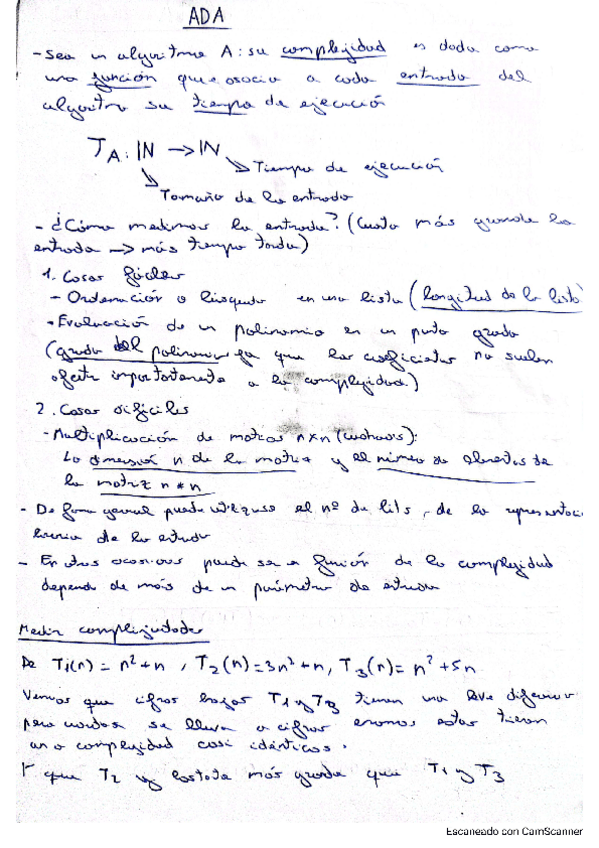 ADA
- Sea un algoritmo A: su complejidad es dada como
una función que asocia a cada entrada del
algoritmo su tiempo de ejecución
T_A: IN → IN
Tiempo de ejecución
Tamaño de la entrada
- ¿Cómo medimos la entrada? (Cuanto más grande la
entrada → más tiempo tarda)
1. Cosas fáciles
- Ordenación o búsqueda en una lista (longitud de la lista)
- Evaluación de un polinomio en un punto grado
(grado del polinomio ya que los coeficientes no suelen
afectar importantemente a la complejidad.)
2. Cosas difíciles
- Multiplicación de matrices n×n (cuadradas):
La dimensión n de la matriz y el número de elementos de
la matriz n * n
- De forma general puede utilizarse el nº de bits, de la representaci
binaria de la entrada
- En otras ocasiones puede ser la función de la complejidad
dependa de más de un parámetro de entrada
Medir complejidades
De T1(n) = n² + n , T2(n) = 3n² + n, T3(n) = n² + 5n
Vemos que cifras bajas T1 y T3 tienen una leve diferencia
pero cuando se lleva a cifras enormes estas tienen
una complejidad casi idénticas.
Y que T2 es bastante más grande que T1 y T3
Escaneado con CamScanner